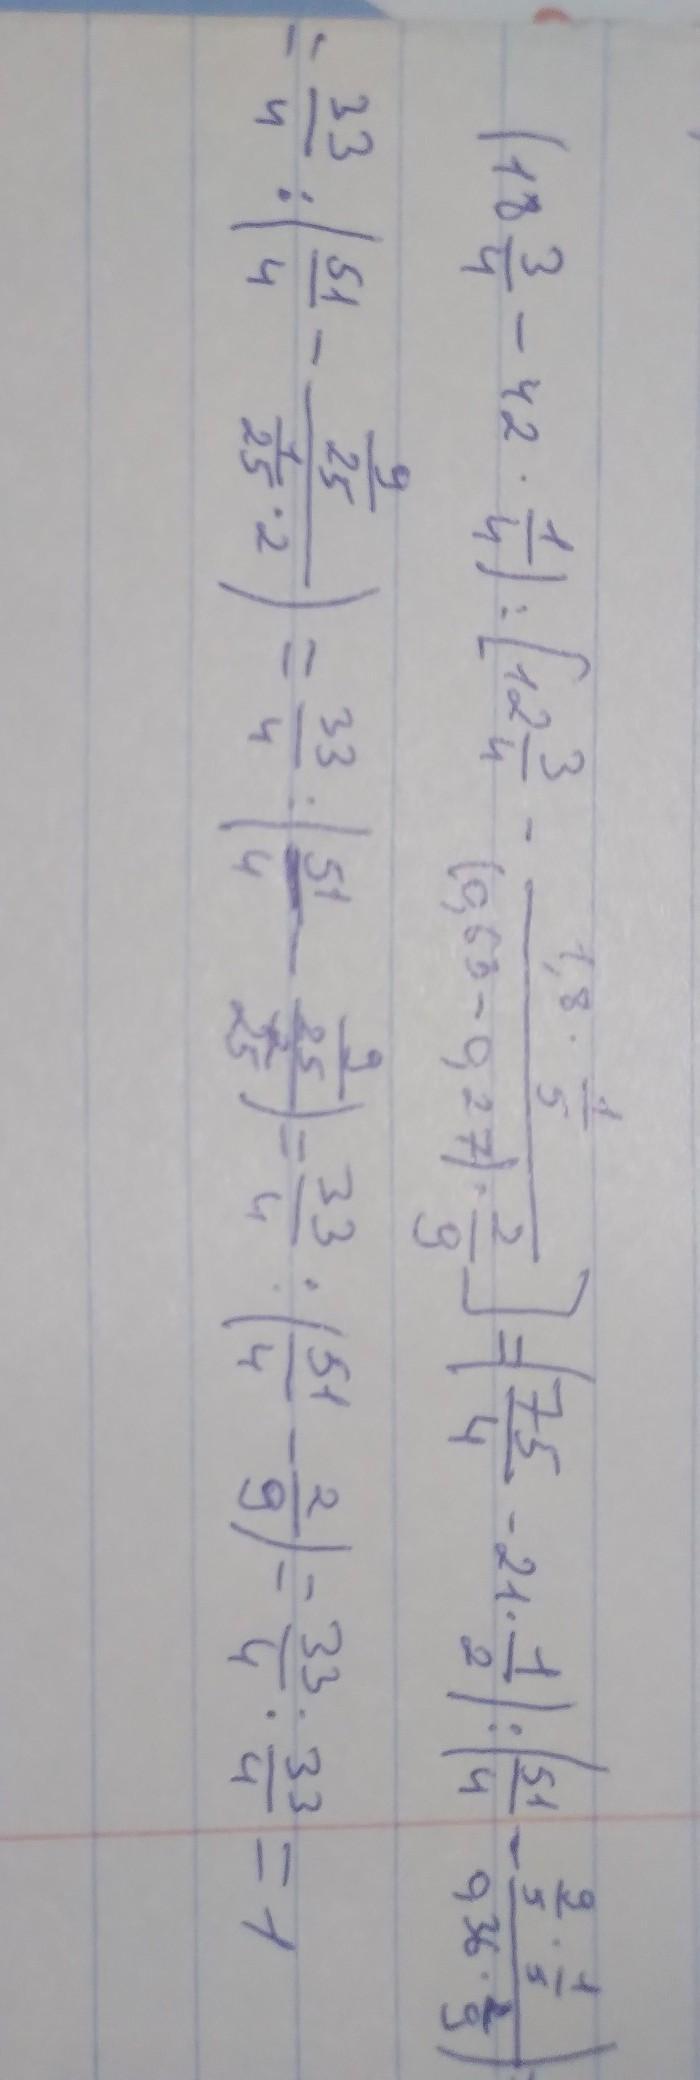 (18 3/4 - 42 · 1/4) : [12 3/4 - (1,8 · 1/5)/((0,63 - 0,27) · 2/9)] = (75/4 - 21 · 1/2) : (51/4 - (9/5 · 1/5)/(0,36 · 2/9)) =
= 33/4 : (51/4 - (9/25)/(1/25 · 2)) = 33/4 : (51/4 - (9/25)/(2/25)) = 33/4 : (51/4 - 2/9) = 33/4 : 33/4 = 1